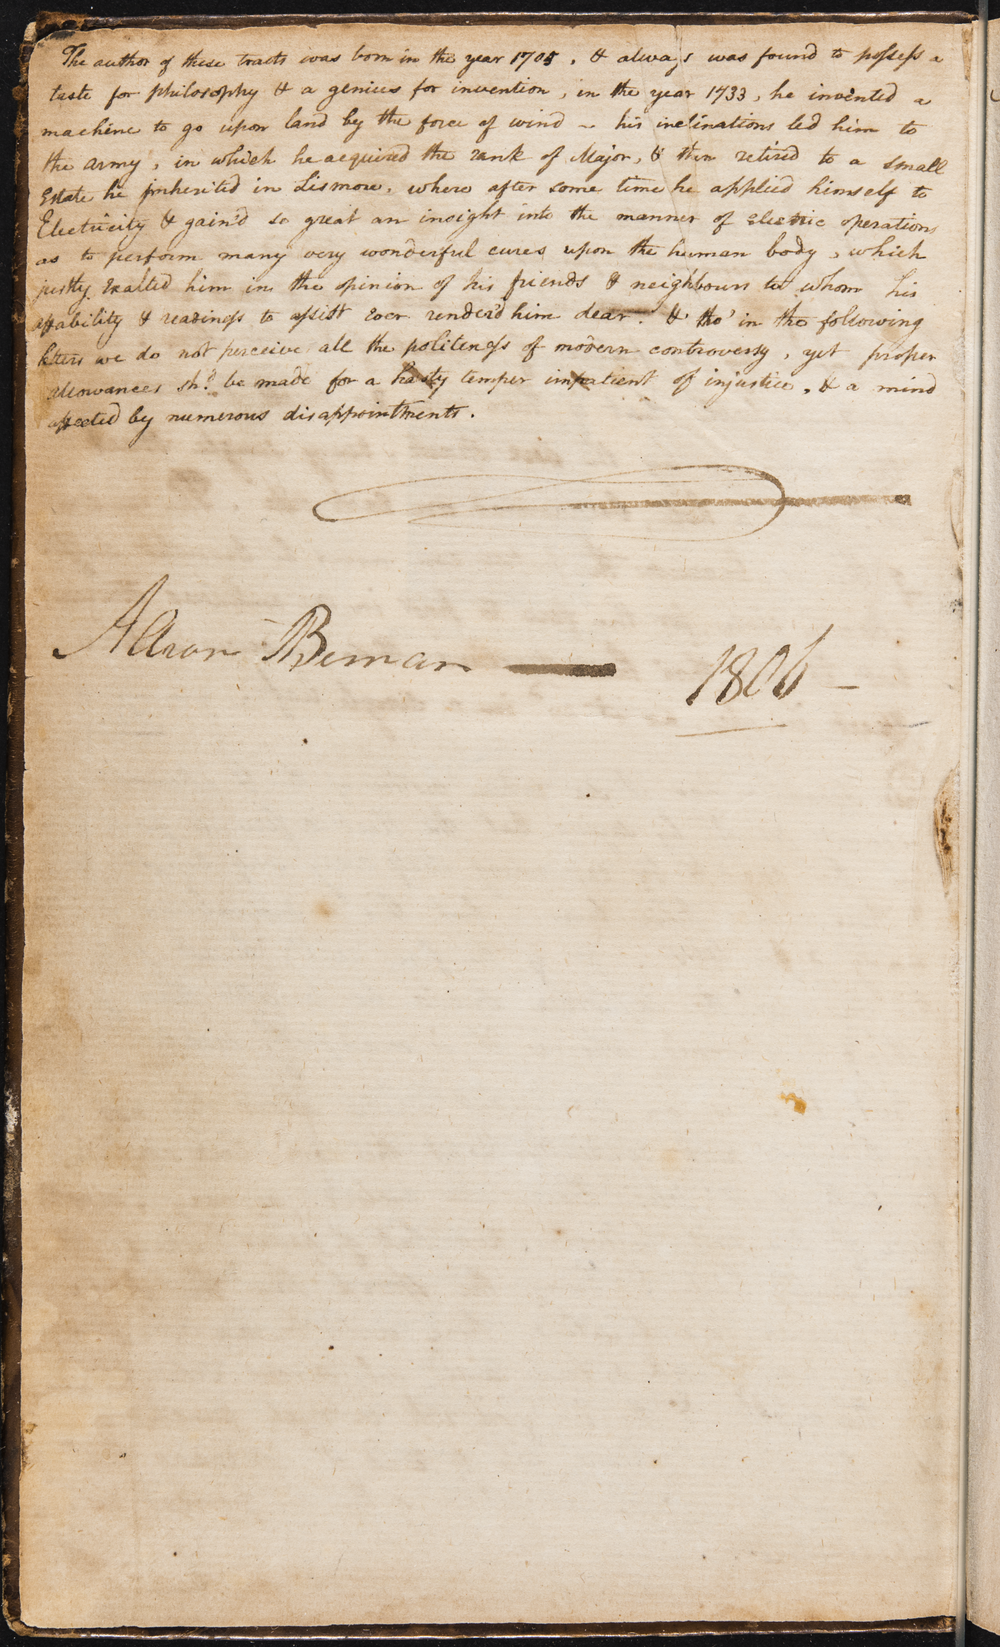 The author of these tracts was born in the year 1705, & always was found to possess a
taste for philosophy & a genius for invention, in the year 1733, he invented a
machine to go upon land by the force of wind – his inclinations led him to
the army, in which he acquired the rank of Major, & then retired to a small
Estate he inherited in Lismore, where after some time he applied himself to
Electricity & gain'd so great an insight into the manner of electric operations
as to perform many very wonderful cures upon the human body, which
justly exalted him in the opinion of his friends & neighbours to whom his
affability & readiness to assist ever render'd him dear. & tho' in the following
letters we do not perceive all the politeness of modern controversy, yet proper
allowances shd. be made for a hasty temper impatient of injustice, & a mind
affected by numerous disappointments.
Aaron Beman 1806